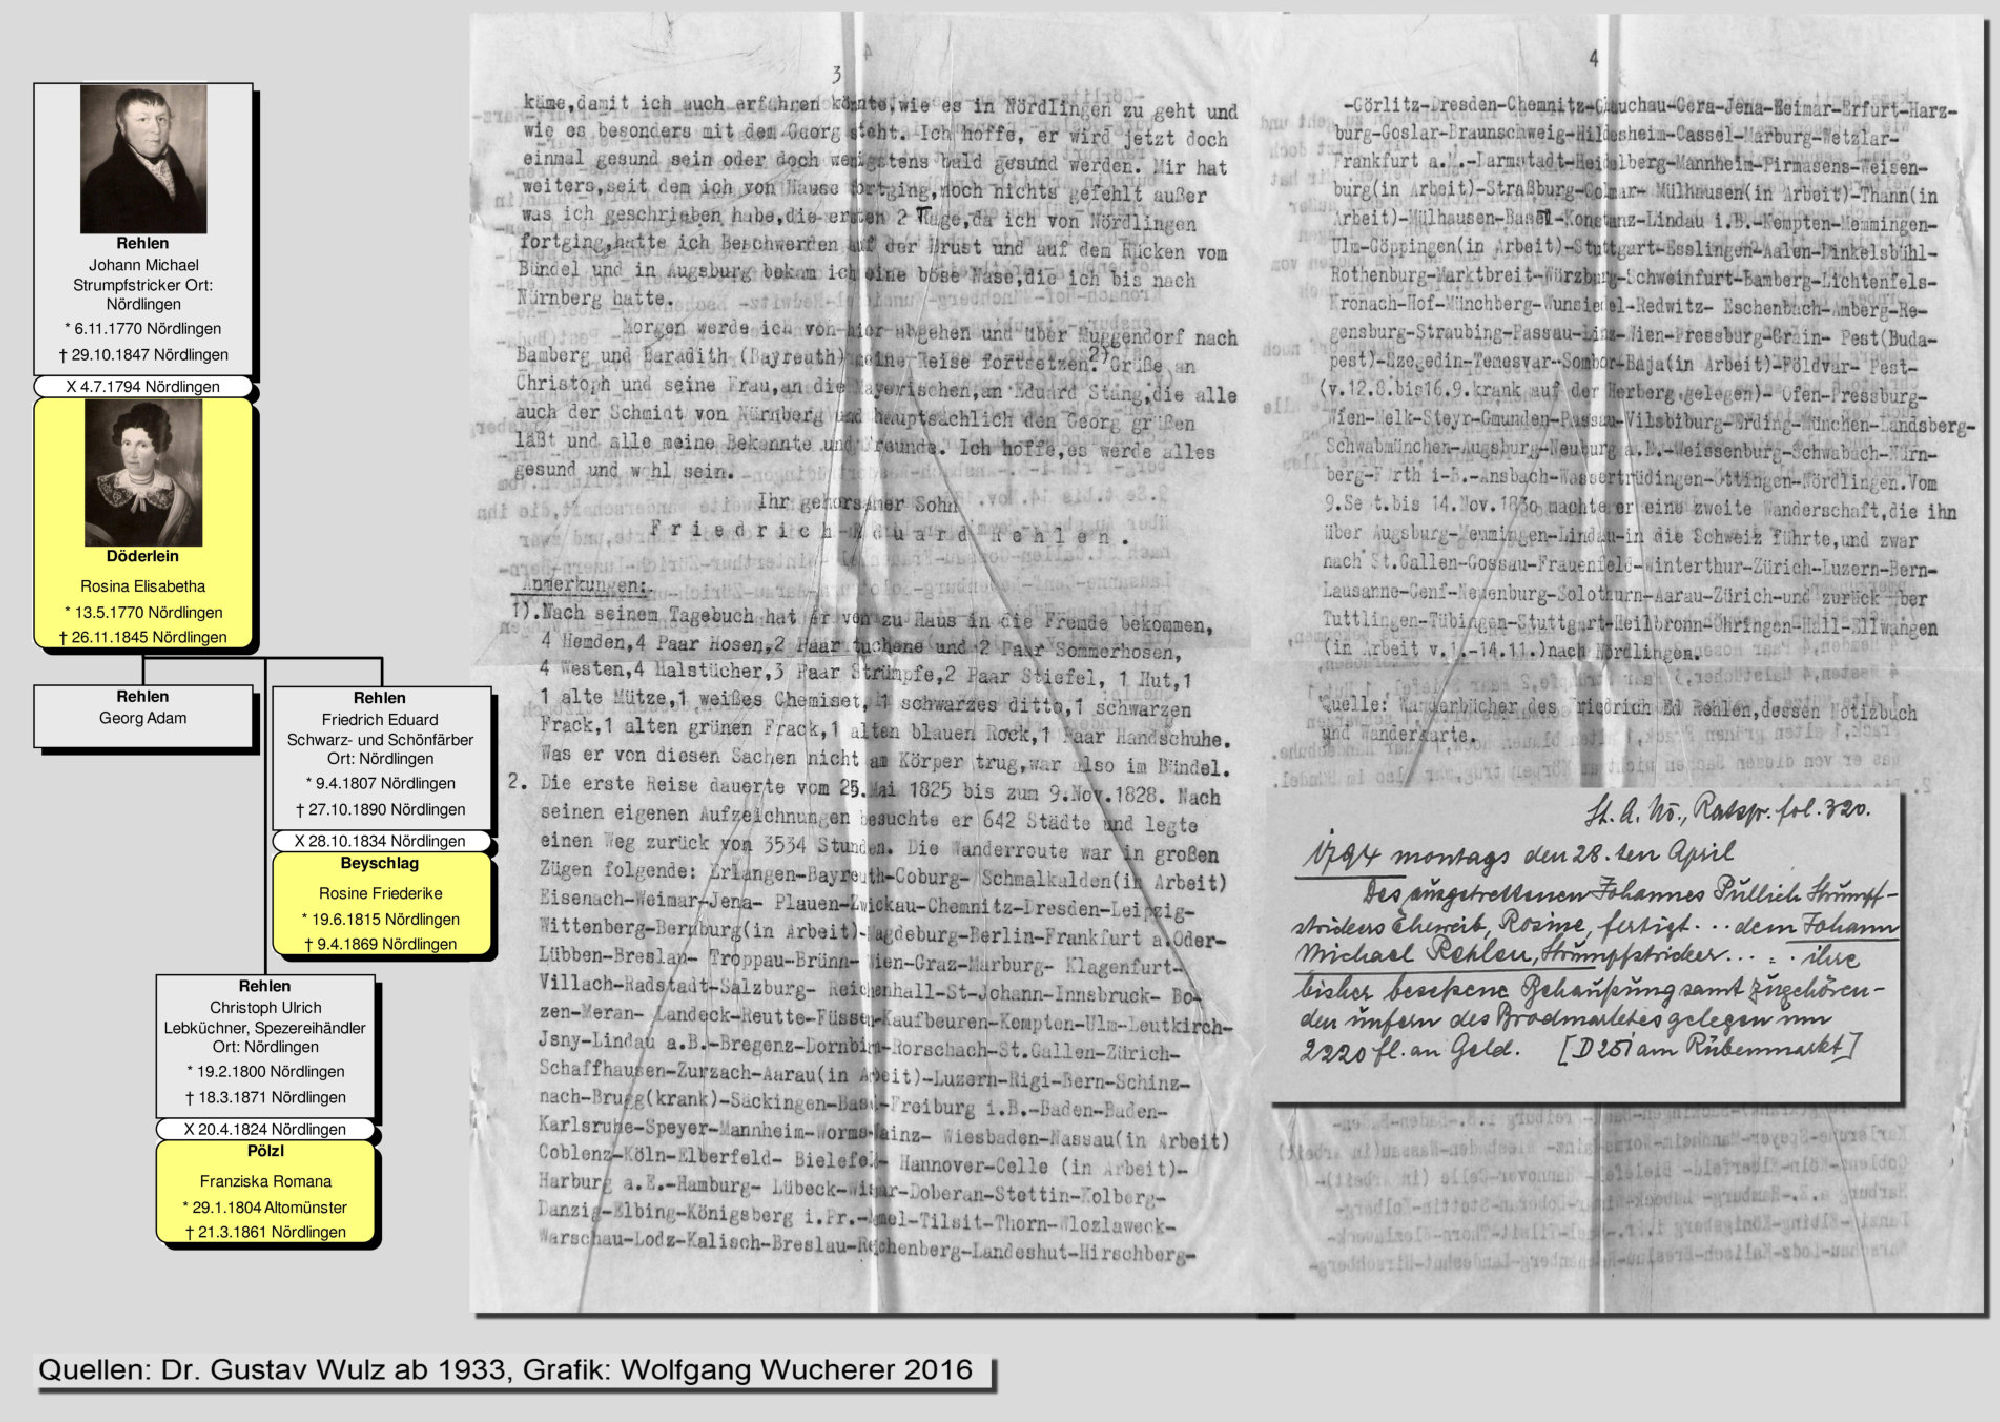 Rehlen
Johann Michael
Strumpfstricker Ort:
Nördlingen
* 6.11.1770 Nördlingen
† 29.10.1847 Nördlingen
X 4.7.1794 Nördlingen
Döderlein
Rosina Elisabetha
* 13.5.1770 Nördlingen
† 26.11.1845 Nördlingen
Rehlen
Georg Adam
Rehlen
Friedrich Eduard
Schwarz- und Schönfärber
Ort: Nördlingen
* 9.4.1807 Nördlingen
† 27.10.1890 Nördlingen
X 28.10.1834 Nördlingen
Beyschlag
Rosine Friederike
* 19.6.1815 Nördlingen
† 9.4.1869 Nördlingen
Rehlen
Christoph Ulrich
Lebküchner, Spezereihändler
Ort: Nördlingen
* 19.2.1800 Nördlingen
† 18.3.1871 Nördlingen
X 20.4.1824 Nördlingen
Pölzl
Franziska Romana
* 29.1.1804 Altomünster
† 21.3.1861 Nördlingen
3
käme,damit ich auch erfahren könnte,wie es in Nördlingen zu geht und
wie es besonders mit dem Georg steht. Ich hoffe, er wird jetzt doch
einmal gesund sein oder doch wenigstens bald gesund werden. Mir hat
weiters,seit dem ich von Hause fortging,noch nichts gefehlt außer
was ich geschrieben habe,die ersten 2 Tage,da ich von Nördlingen
fortging,hatte ich Beschwerden auf der Brust und auf dem Rücken vom
Bündel und in Augsburg bekam ich eine böse Nase,die ich bis nach
Nürnberg hatte.
Morgen werde ich von hier abgehen und über Muggendorf nach
Bamberg und Baradith (Bayreuth) meine Reise fortsetzen.2) Grüße an
Christoph und seine Frau,an die Mayerischen,an Eduard Stang,die alle
auch der Schmidt von Nürnberg und hauptsächlich den Georg grüßen
läßt und alle meine Bekannte und Freunde. Ich hoffe,es werde alles
gesund und wohl sein.
Ihr gehorsamer Sohn
Friedrich Eduard Rehlen.
Anmerkungen:
1).Nach seinem Tagebuch hat er von zu Haus in die Fremde bekommen,
4 Hemden,4 Paar Hosen,2 Paar tuchene und 2 Paar Sommerhosen,
4 Westen,4 Halstücher,3 Paar Strümpfe,2 Paar Stiefel, 1 Hut,1
1 alte Mütze,1 weißes Chemiset, 1 schwarzes ditto,1 schwarzen
Frack,1 alten grünen Frack,1 alten blauen Rock,1 Paar Handschuhe.
Was er von diesen Sachen nicht am Körper trug,war also im Bündel.
2. Die erste Reise dauerte vom 25.Mai 1825 bis zum 9.Nov.1828. Nach
seinen eigenen Aufzeichnungen besuchte er 642 Städte und legte
einen Weg zurück von 3534 Stunden. Die Wanderroute war in großen
Zügen folgende: Erlangen-Bayreuth-Coburg- Schmalkalden(in Arbeit)
Eisenach-Weimar-Jena- Plauen-Zwickau-Chemnitz-Dresden-Leipzig-
Wittenberg-Bernburg(in Arbeit)-Magdeburg-Berlin-Frankfurt a.Oder-
Lübben-Breslau- Troppau-Brünn-Wien-Graz-Marburg- Klagenfurt-
Villach-Radstadt-Salzburg- Reichenhall-St-Johann-Innsbruck- Bo-
zen-Meran- Landeck-Reutte-Füssen-Kaufbeuren-Kempten-Ulm-Leutkirch-
Jsny-Lindau a.B.-Bregenz-Dornbirn-Rorschach-St.Gallen-Zürich-
Schaffhausen-Zurzach-Aarau(in Arbeit)-Luzern-Rigi-Bern-Schinz-
nach-Brugg(krank)-Säckingen-Basel-Freiburg i.B.-Baden-Baden-
Karlsruhe-Speyer-Mannheim-Worms-Mainz- Wiesbaden-Nassau(in Arbeit)
Coblenz-Köln-Elberfeld- Bielefeld- Hannover-Celle (in Arbeit)-
Harburg a.E.-Hamburg- Lübeck-Wismar-Doberan-Stettin-Kolberg-
Danzig-Elbing-Königsberg i.Pr.-Memel-Tilsit-Thorn-Wlozlaweck-
Warschau-Lodz-Kalisch-Breslau-Reichenberg-Landeshut-Hirschberg-
4
-Görlitz-Dresden-Chemnitz-Glauchau-Gera-Jena-Weimar-Erfurt-Harz-
burg-Goslar-Braunschweig-Hildesheim-Cassel-Marburg-Wetzlar-
Frankfurt a.M.-Darmstadt-Heidelberg-Mannheim-Pirmasens-Weisen-
burg(in Arbeit)-Straßburg-Colmar- Mülhausen(in Arbeit)-Thann(in
Arbeit)-Mülhausen-Basel-Konstanz-Lindau i.B.-Kempten-Memmingen-
Ulm-Göppingen(in Arbeit)-Stuttgart-Esslingen-Aalen-Dinkelsbühl-
Rothenburg-Marktbreit-Würzburg-Schweinfurt-Bamberg-Lichtenfels-
Kronach-Hof-Münchberg-Wunsiedel-Redwitz- Eschenbach-Amberg-Re-
gensburg-Straubing-Passau-Linz-Wien-Pressburg-Grain- Pest(Buda-
pest)-Szegedin-Temesvar-Sombor-Baja(in Arbeit)-Földvar- Pest-
(v.12.8.bis16.9.krank auf der Herberg gelegen)- Ofen-Pressburg-
Wien-Melk-Steyr-Gmunden-Passau-Vilsbiburg-Erding-München-Landsberg-
Schwabmünchen-Augsburg-Neuburg a.D.-Weissenburg-Schwabach-Nürn-
berg-Fürth i-B.-Ansbach-Wassertrüdingen-Öttingen-Nördlingen.Vom
9.Sept.bis 14.Nov.1830 machte er eine zweite Wanderschaft,die ihn
über Augsburg-Memmingen-Lindau-in die Schweiz führte,und zwar
nach St.Gallen-Gossau-Frauenfeld-Winterthur-Zürich-Luzern-Bern-
Lausanne-Genf-Neuenburg-Solothurn-Aarau-Zürich-und zurück über
Tuttlingen-Tübingen-Stuttgart-Heilbronn-Öhringen-Hall-Ellwangen
(in Arbeit v.1.-14.11.)nach Nördlingen.
Quelle: Wanderbücher des Friedrich Ed Rehlen,dessen Notizbuch
und Wanderkarte.
St. A. Nö., Ratspr. fol. 320.
1794 montags den 28. ten April
Des ausgetrettenen Johannes Püllich Strumpf-
strickers Eheweib, Rosine, fertigt . . . dem Johann
Michael Rehlen, Strumpfstricker . . . . ihre
bisher beseßene Behaußung samt zugehören-
den unfern des Brodmarktes gelegen um
2220 fl. an Geld. [D 251 am Rübenmarkt]
Quellen: Dr. Gustav Wulz ab 1933, Grafik: Wolfgang Wucherer 2016